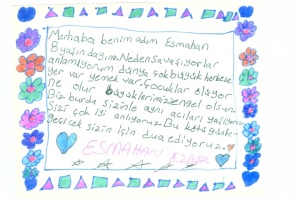 Merhaba benim adım Esmahan
8 yaşındayım. Neden savaşıyorlar
anlamıyorum dünya çok büyük herkese
yer var yemek var. Çocuklar ölüyor
Ne olur büyüklerimiz engel olsun.
Biz burda sizinle aynı acıları yaşıyoruz
Sizi çok iyi anlıyoruz. Bu kötü günler
geçicek sizin için dua ediyoruz.
ESMAHAN